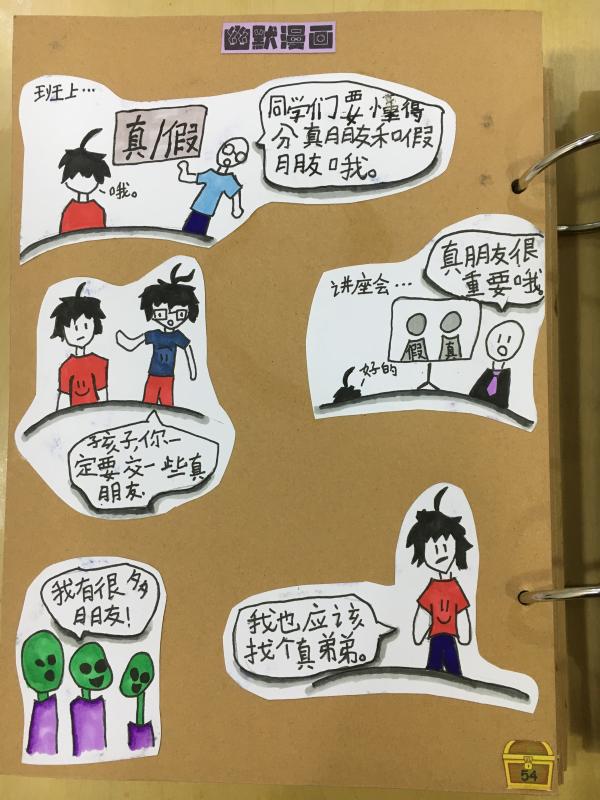 幽默漫画
班上…
真/假
哦。
同学们要懂得
分真朋友和假
朋友哦。
孩子,你一
定要交一些真
朋友.
讲座会…
真朋友很
重要哦
假 真
好的
我有很多
朋友!
我也应该
找个真弟弟。
54